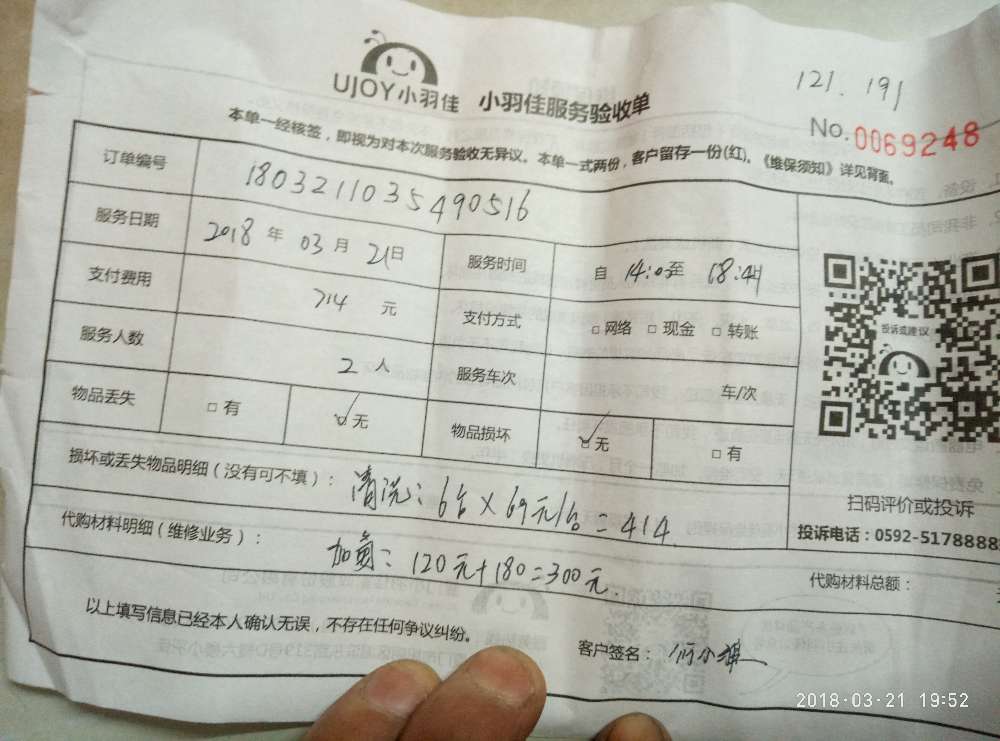 121.191
UJOY小羽佳 小羽佳服务验收单
No.0069248
本单一经核签，即视为对本次服务验收无异议。本单一式两份，客户留存一份(红)。《维保须知》详见背面。
订单编号 180321103549051 6
服务日期 2018 年 03 月 21 日 服务时间 自 14:0 至 18:44
支付费用 714 元 支付方式 □网络 □现金 □转账
服务人数 2 人 服务车次 车/次
物品丢失 □有 ☑无 物品损坏 ☑无 □有
投诉或建议
损坏或丢失物品明细（没有可不填）： 清洗：6台×69元/台=414
扫码评价或投诉
投诉电话：0592-5178888
代购材料明细（维修业务）： 加氟：120元+180=300元
代购材料总额：
以上填写信息已经本人确认无误，不存在任何争议纠纷。
客户签名：
2018-03-21 19:52